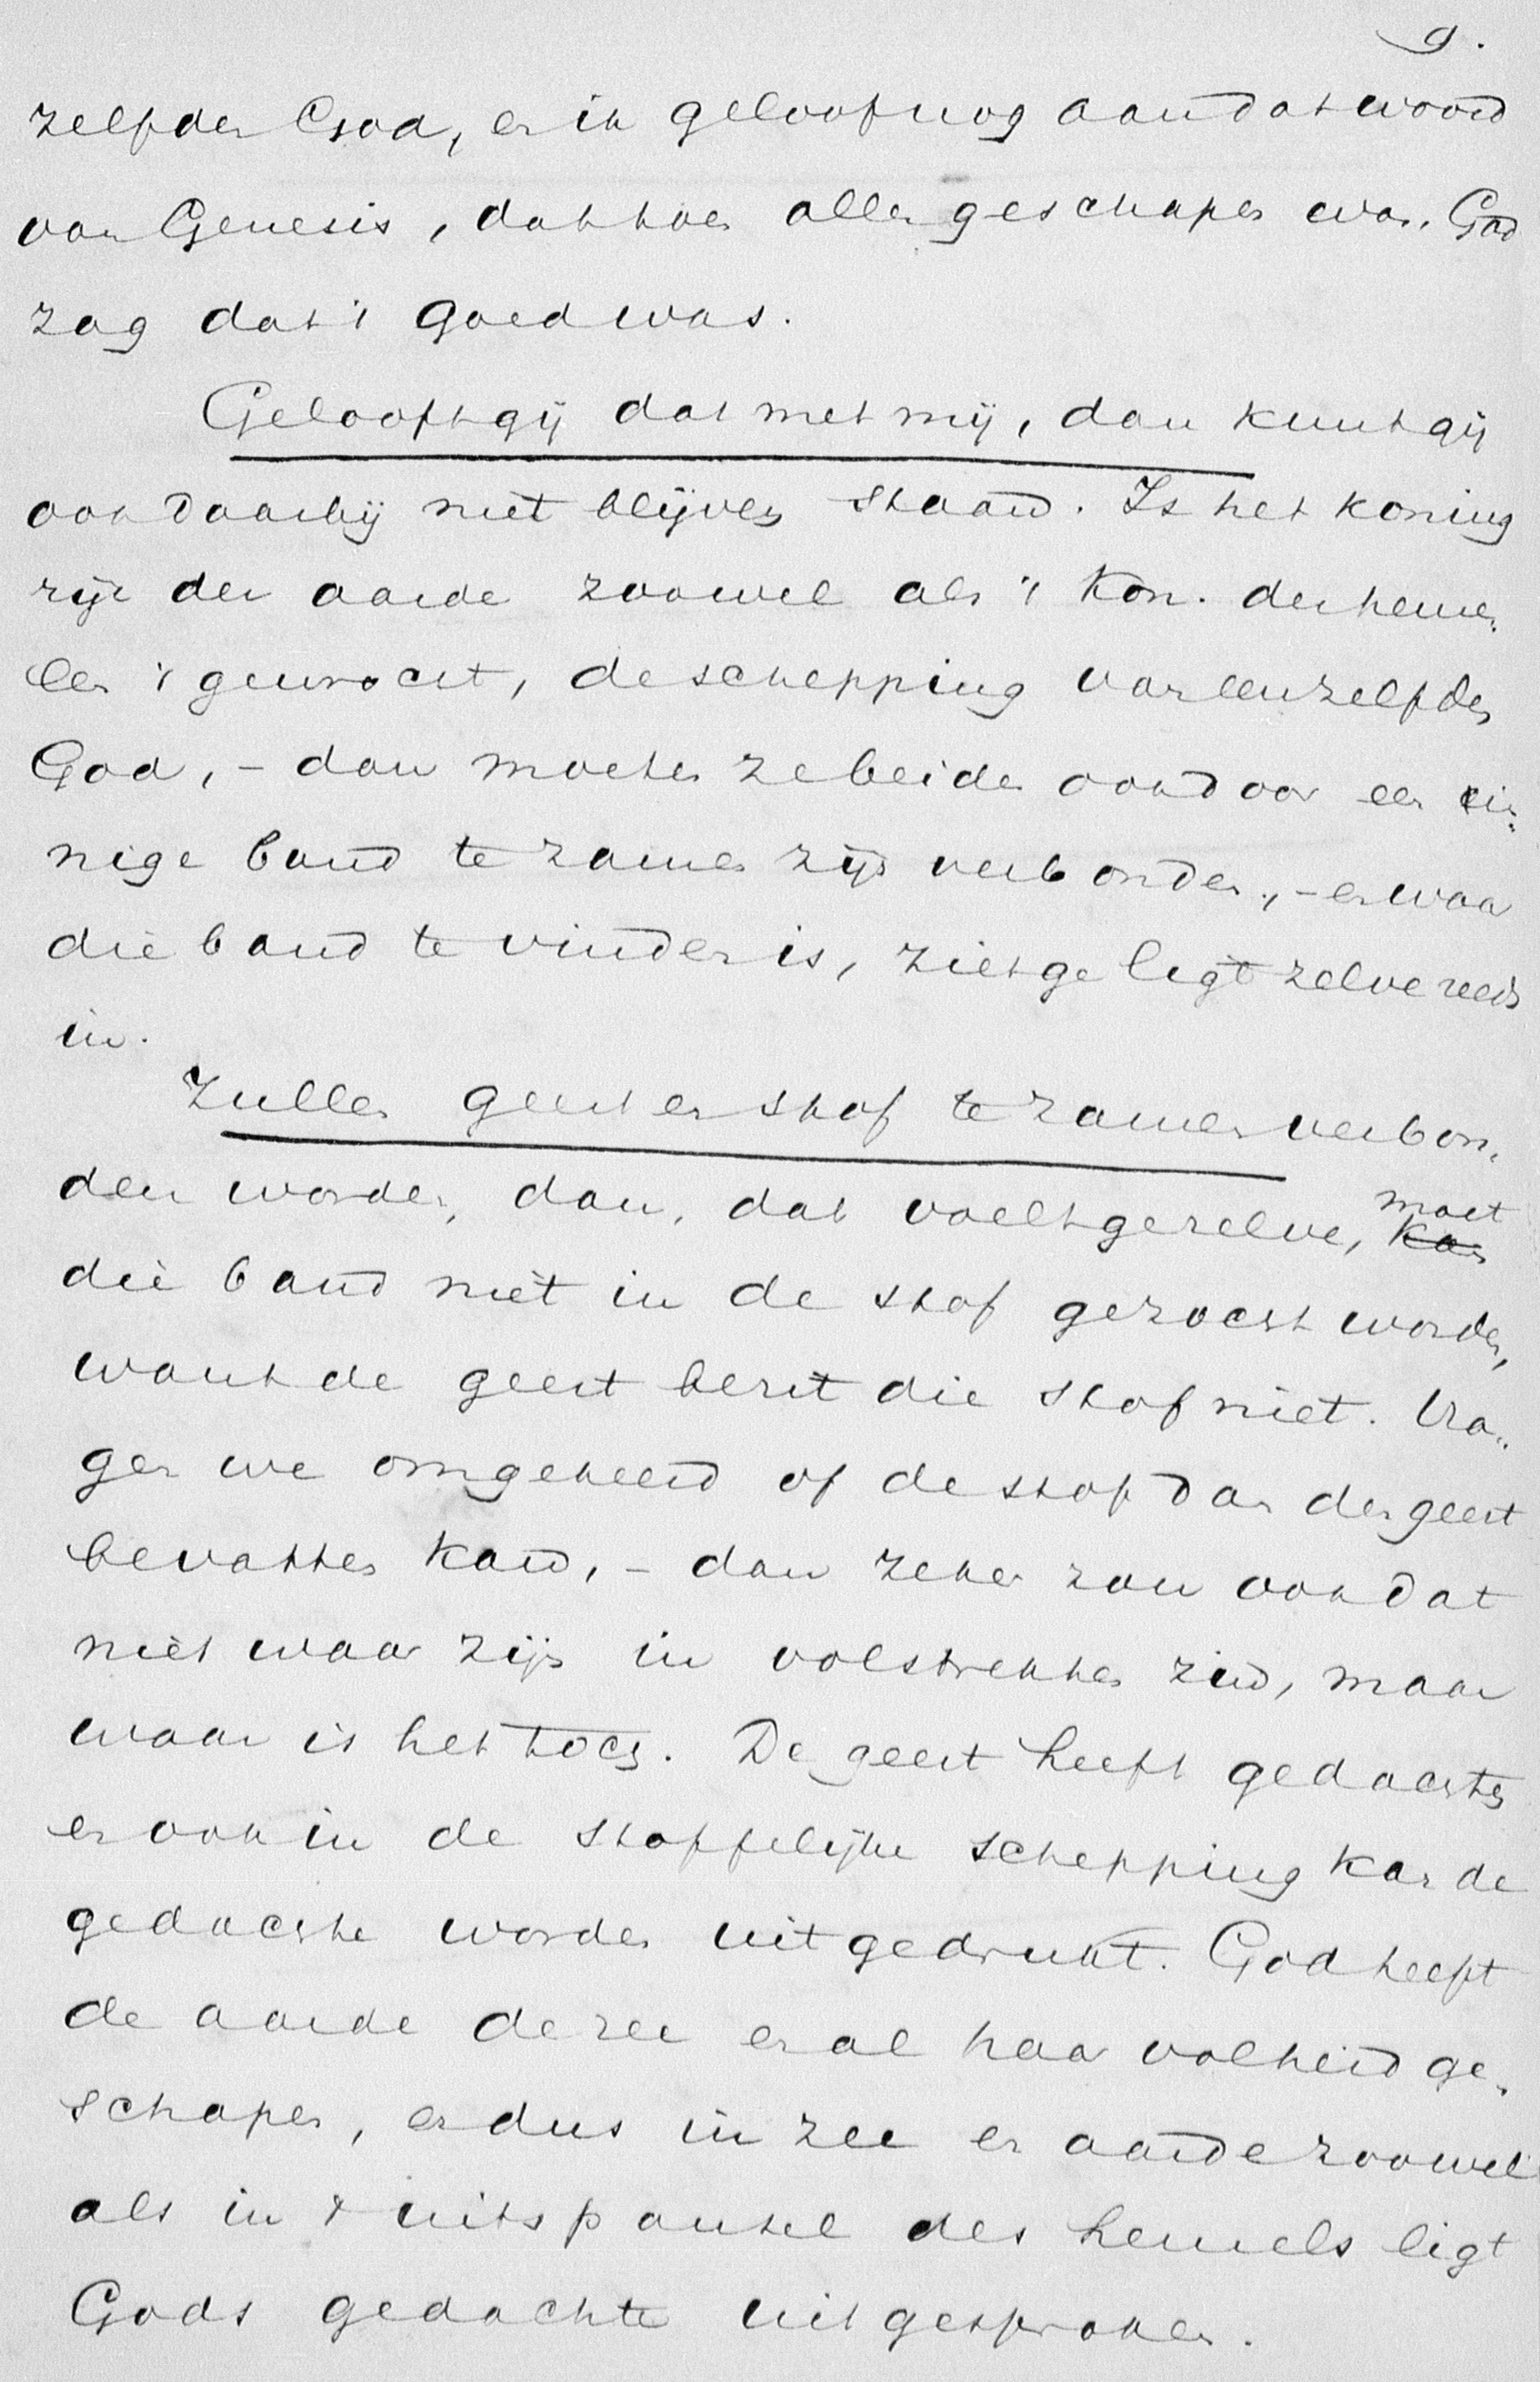 9.
zelfden God, en ik geloof nog aan dat woord
van Genesis, dat toen alles geschapen was, God
zag dat 't goed was.
Gelooft gij dat met mij, dan kunt gij
ook daarbij niet blijven staan. Is het koning
rijk der aarde zoowel als 't Kon. der heme-
len 't gewrocht, de schepping van eenzelfden
God, - dan moeten ze beiden ook door een ei-
nige band te zamen zijn verbonden, - en waar
die band te vinden is, ziet ge ligt zelve reeds
in.
Zullen geest en stof te zamen verbon-
den worden, dan, dat voelt ge zelve, ~~kan~~ moet
die band niet in de stof gezocht worden,
want de geest bezit die stof niet. Vra-
gen we omgekeerd of de stof dan den geest
bevatten kan, - dan zeker zou ook dat
niet waar zijn in volstrekten zin, maar
waar is het toch. De geest heeft gedachten
en ook in de stoffelijke schepping kan de
gedachte worden uitgedrukt. God heeft
de aarde de zee en al haar volheid ge-
schapen, en dus in zee en aarde zoowel
als in 't uitspansel des hemels ligt
Gods gedachte uitgesproken.